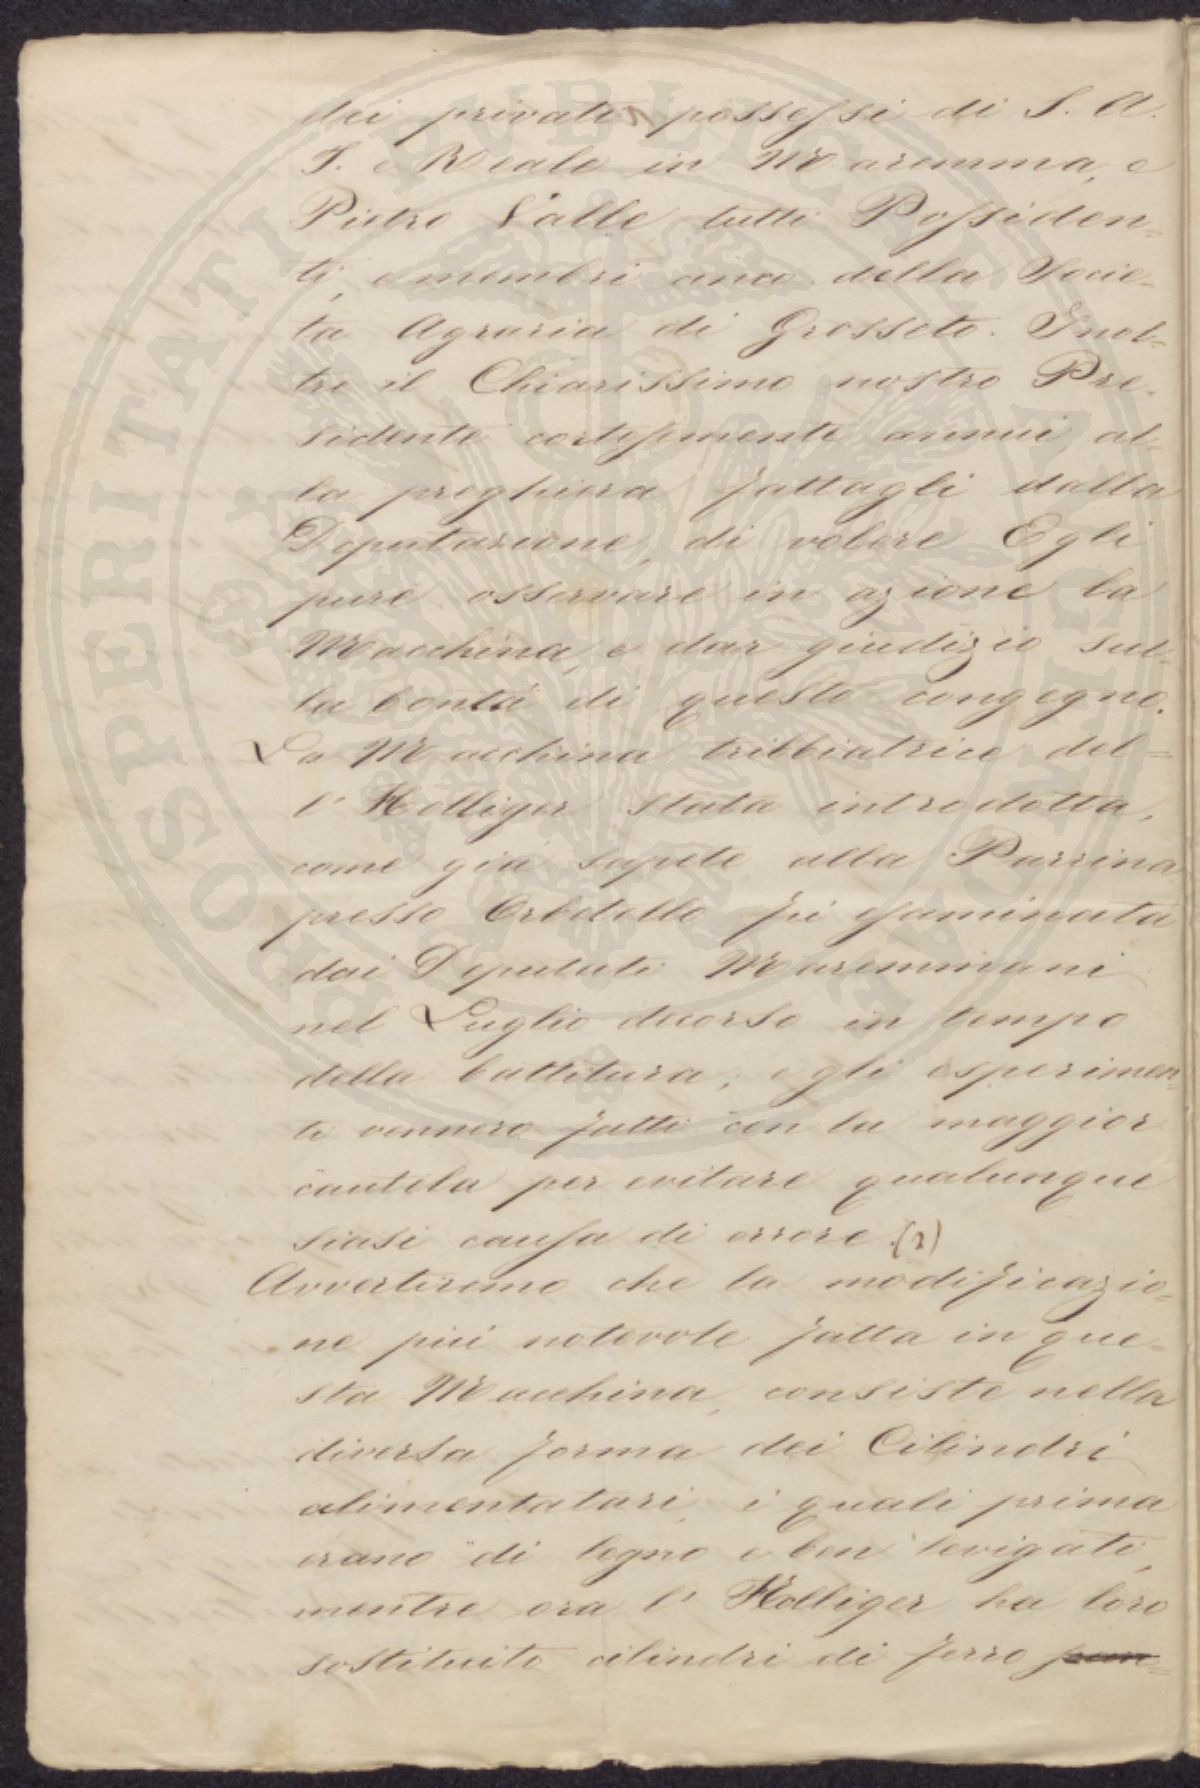 dei privati possessi di S. A.
I. e Reale in Maremma, e
Pietro Valle tutti Possiden=
ti, e membri anco della Socie=
tà Agraria di Grosseto. Inol=
tre il Chiarissimo nostro Pre=
sidente cortesemente annuì al=
la preghiera fattagli dalla
Deputazione, di volere Egli
pure osservare in azione la
Macchina, e dar giudizio sul=
la bontà di questo congegno.
La Macchina tribbiatrice del=
l' Holliger stata introdotta,
come già sapete alla Parrina
presso Orbetello fu esaminata
dai Deputati Maremmani
nel Luglio decorso in tempo
della battitura, e gli esperimen=
ti vennero fatti con la maggior
cautela per evitare qualunque
siasi causa di errore. (2)
Avvertiremo che la modificazio=
ne più notevole fatta in que=
sta Macchina, consiste nella
diversa forma dei Cilindri
alimentatari, i quali prima
erano di legno e ben levigati,
mentre ora l' Holliger ha loro
sostituito cilindri di ferro
PROSPERITATI PUBLICAE AUGENDAE